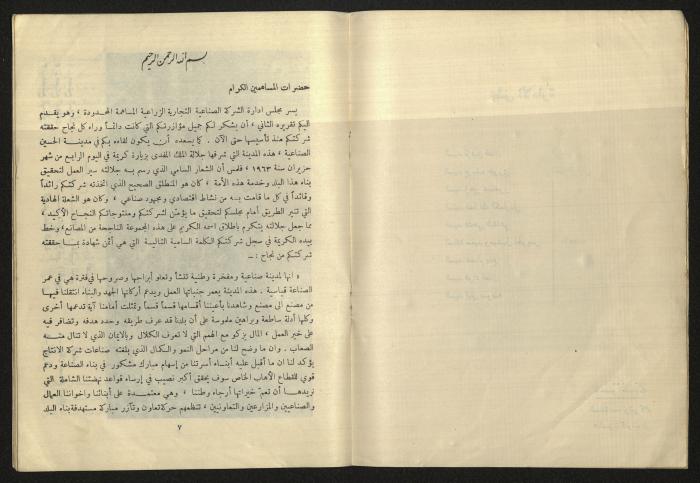 بسم الله الرحمن الرحيم
حضرات المساهمين الكرام
يسر مجلس ادارة الشركة الصناعية التجارية الزراعية المساهمة المحدودة ، وهو يقدم
اليكم تقريره الثاني ، أن يشكر لكم جميل مؤازرتكم التي كانت دائماً وراء كل نجاح حققته
شركتكم منذ تأسيسها حتى الآن . كما يسعده أن يكون لقاءه بكم في مدينة الحسين
الصناعية ، هذه المدينة التي شرفها جلالة الملك المفدى بزيارة كريمة في اليوم الرابع من شهر
حزيران سنة ١٩٦٣ ، فلمس أن الشعار السامي الذي رسم به جلالته سير العمل لتحقيق
بناء هذا البلد وخدمة هذه الأمة ، كان هو المنطلق الصحيح الذي اتخذته شركتكم رائداً
وقائداً في كل ما قامت به من نشاط اقتصادي ومجهود صناعي ، وكان هو الشعلة الهادية
التي تنير الطريق أمام مجلسكم لتحقيق ما يؤمن لشركتكم ومنتوجاتكم النجاح الأكيد ،
مما جعل جلالته يتكرم باطلاق اسمه الكريم على هذه المجموعة الناجحة من المصانع، وخط
بيده الكريمة في سجل شركتكم الكلمة السامية التالية التي هي أثمن شهادة بما حققته
شركتكم من نجاح : ــ
« انها لمدينة صناعية ومفخرة وطنية تنشأ وتعلو أبراجها وصروحها في فترة هي في عمر
الصناعة قياسية . هذه المدينة يعمر جنباتها العمل ويدعم أركانها الجهد والبناء انتقلنا فيها
من مصنع الى مصنع وشاهدنا بأعيننا أقسامها قسماً قسماً وتمثلت أمامنا آية تدعمها أخرى
وكلها أدلة ساطعة وبراهين ملموسة على أن بلدنا قد عرف طريقه وحدد هدفه وتضافر فيه
على خير العمل ، المال يزكو مع الهمم التي لا تعرف الكلال وبالايمان الذي لا تنال منه
الصعاب . وان ما وضح لنا من مراحل النمو والكمال الذي بلغته صناعات شركة الانتاج
يؤكد لنا ان ما أقبل عليه أبناء أسرتنا من إسهام مبارك مشكور في بناء الصناعة ودعم
قوي للقطاع الأهلب الخاص سوف يحقق أكبر نصيب في إرساء قواعد نهضتنا الشاملة التي
نريدها أن تعم خيراتها أرجاء وطننا ، وهي معتمدة على أبنائنا واخواننا العمال
والصناعيين والمزارعين والتعاونيين ، تنتظمهم حركة تعاون وتآزر مباركة مستهدفة بناء البلد
٧